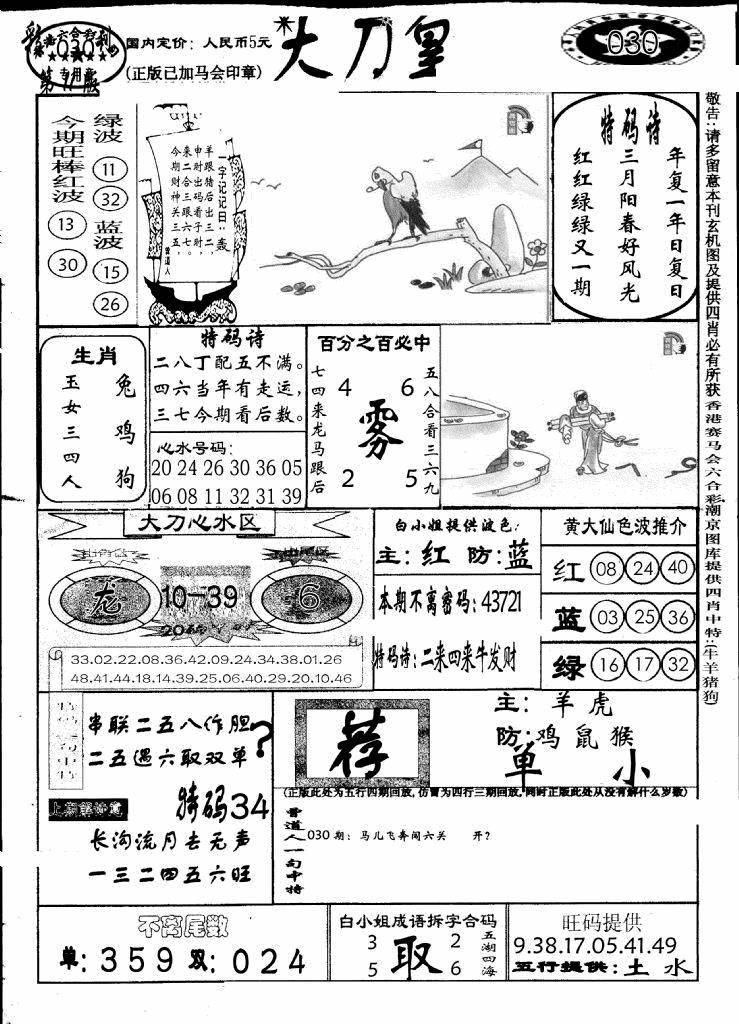 彩
港六合彩
030
专用章
第11版
国内定价：人民币5元
(正版已加马会印章)
大刀皇
030
绿波
11
32
蓝波
15
26
今期旺棒红波
13
30
一字记记曰：轰
羊跟猪后出三二，
申时出码看子时，
来二合三跟六七。
今期财神关三五，
曾道人
特码诗
年复一年日复日
三月阳春好风光
红红绿绿又一期
敬告：请多留意本刊玄机图及提供四肖必有所获香港赛马会六合彩潮京图库提供四肖中特：(牛羊猪狗)
生肖
兔鸡狗
玉女三四人
特码诗
二八丁配五不满。
四六当年有走运，
三七今期看后数。
心水号码：
20 24 26 30 36 05
06 08 11 32 31 39
百分之百必中
五八合看三六九
七四来龙马跟后
4 6
雾
2 5
大刀心水区
龙
10—39
6
33.02.22.08.36.42.09.24.34.38.01.26
48.41.44.18.14.39.25.06.40.29.20.10.46
白小姐提供波色：
主：红 防：蓝
本期不离密码：43721
特码诗：二来四来牛发财
黄大仙色波推介
红 08 24 40
蓝 03 25 36
绿 16 17 32
串联二五八作胆
二五遇六取双单
?
特码34
长沟流月去无声
一三二四五六旺
荐
主：羊虎
防：鸡鼠猴
单 小
(正版此处为五行四期回放，仿冒为四行三期回放，同时正版此处从没有解什么岁数)
曾道人一句中特
030期：马儿飞奔闯六关 开?
不离尾数
单：359 双：024
白小姐成语拆字合码
3 2
取
5 6
五湖四海
旺码提供
9.38.17.05.41.49
五行提供：土 水